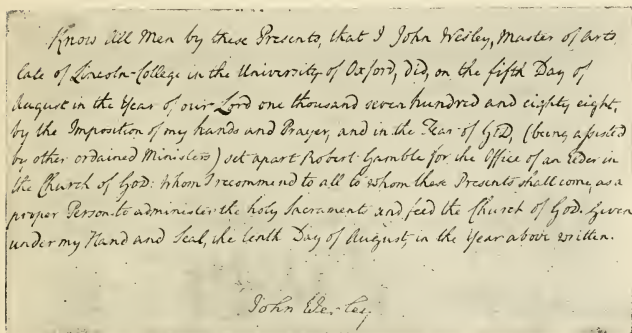 Know All Men by these Presents, that I John Wesley, Master of Arts
late of Lincoln-College in the University of Oxford, Did, on the fifth Day of
August in the Year of our Lord one thousand seven hundred and eighty eight,
by the Imposition of my hands and Prayer, and in the Fear of GOD, (being assisted
by other ordained Ministers) set apart Robert Gamble for the Office of an Elder in
the Church of GOD: Whom I recommend to all to whom these Presents shall come, as a
proper Person to administer the holy Sacraments and feed the Church of GOD. Given
under my Hand and Seal, the tenth Day of August, in the Year above written.
John Wesley